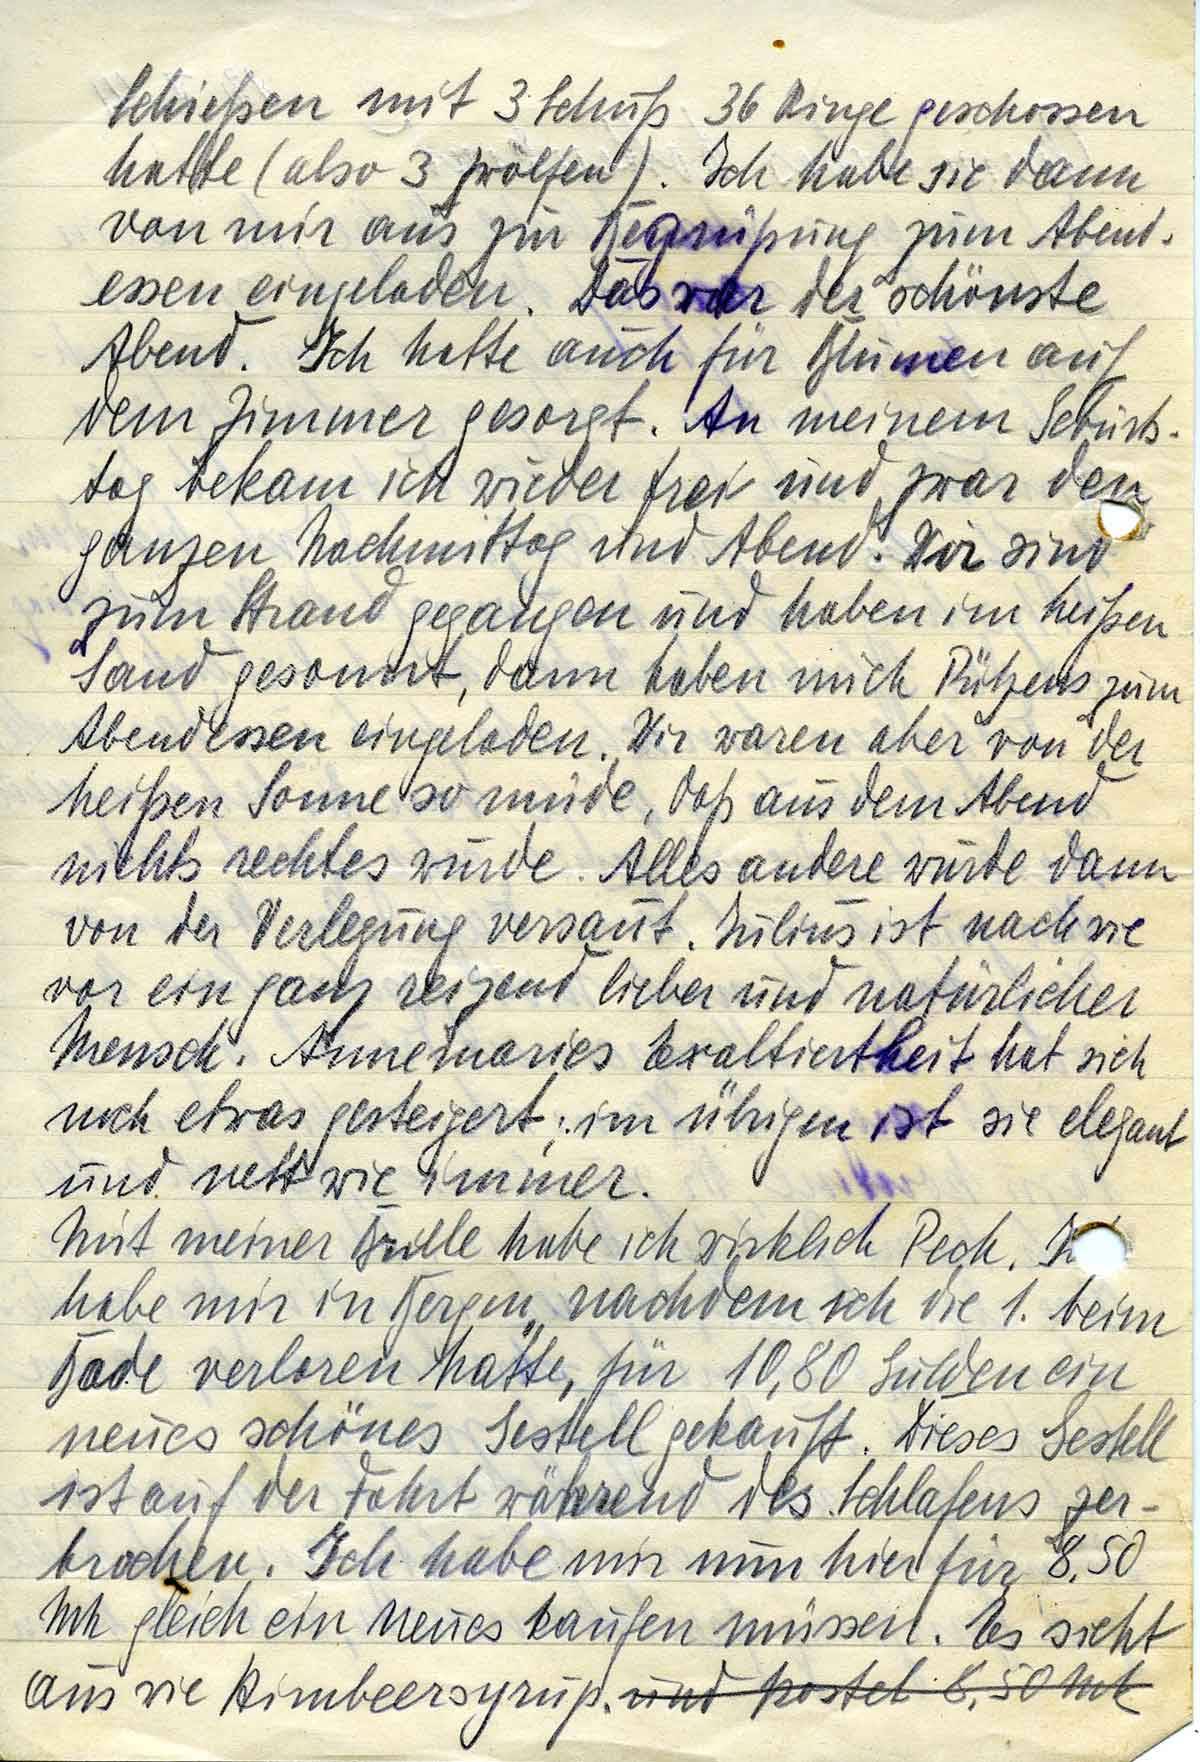 Schießen mit 3 Schuß 36 Ringe geschossen
hatte (also 3 Zwölfen). Ich habe sie dann
von mir aus zur Begrüßung zum Abend-
essen eingeladen. Das war der schönste
Abend. Ich hatte auch für Blumen auf
dem Zimmer gesorgt. An meinem Geburts-
tag bekam ich wieder frei und zwar den
ganzen Nachmittag und Abend. Wir sind
zum Strand gegangen und haben im heißen
Sand gesonnt, dann haben mich Pützens zum
Abendessen eingeladen. Wir waren aber von der
heißen Sonne so müde, daß aus dem Abend
nichts rechtes wurde. Alles andere wurde dann
von der Verlegung versaut. Julius ist nach wie
vor ein ganz reizend lieber und natürlicher
Mensch. Annemaries Exaltiertheit hat sich
noch etwas gesteigert; im übrigen ist sie elegant
und nett wie immer.
Mit meiner Brille habe ich wirklich Pech.
habe mir in Bergen, nachdem ich die 1. beim
Bade verloren hatte, für 10,80 Gulden ein
neues schönes Gestell gekauft. Dieses Gestell
ist auf der Fahrt während des Schlafens zer-
brochen. Ich habe mir nun hier für 8.50
Mk gleich ein neues kaufen müssen. Es sieht
aus wie Himbeersyrup. und kostet 8,50 Mk